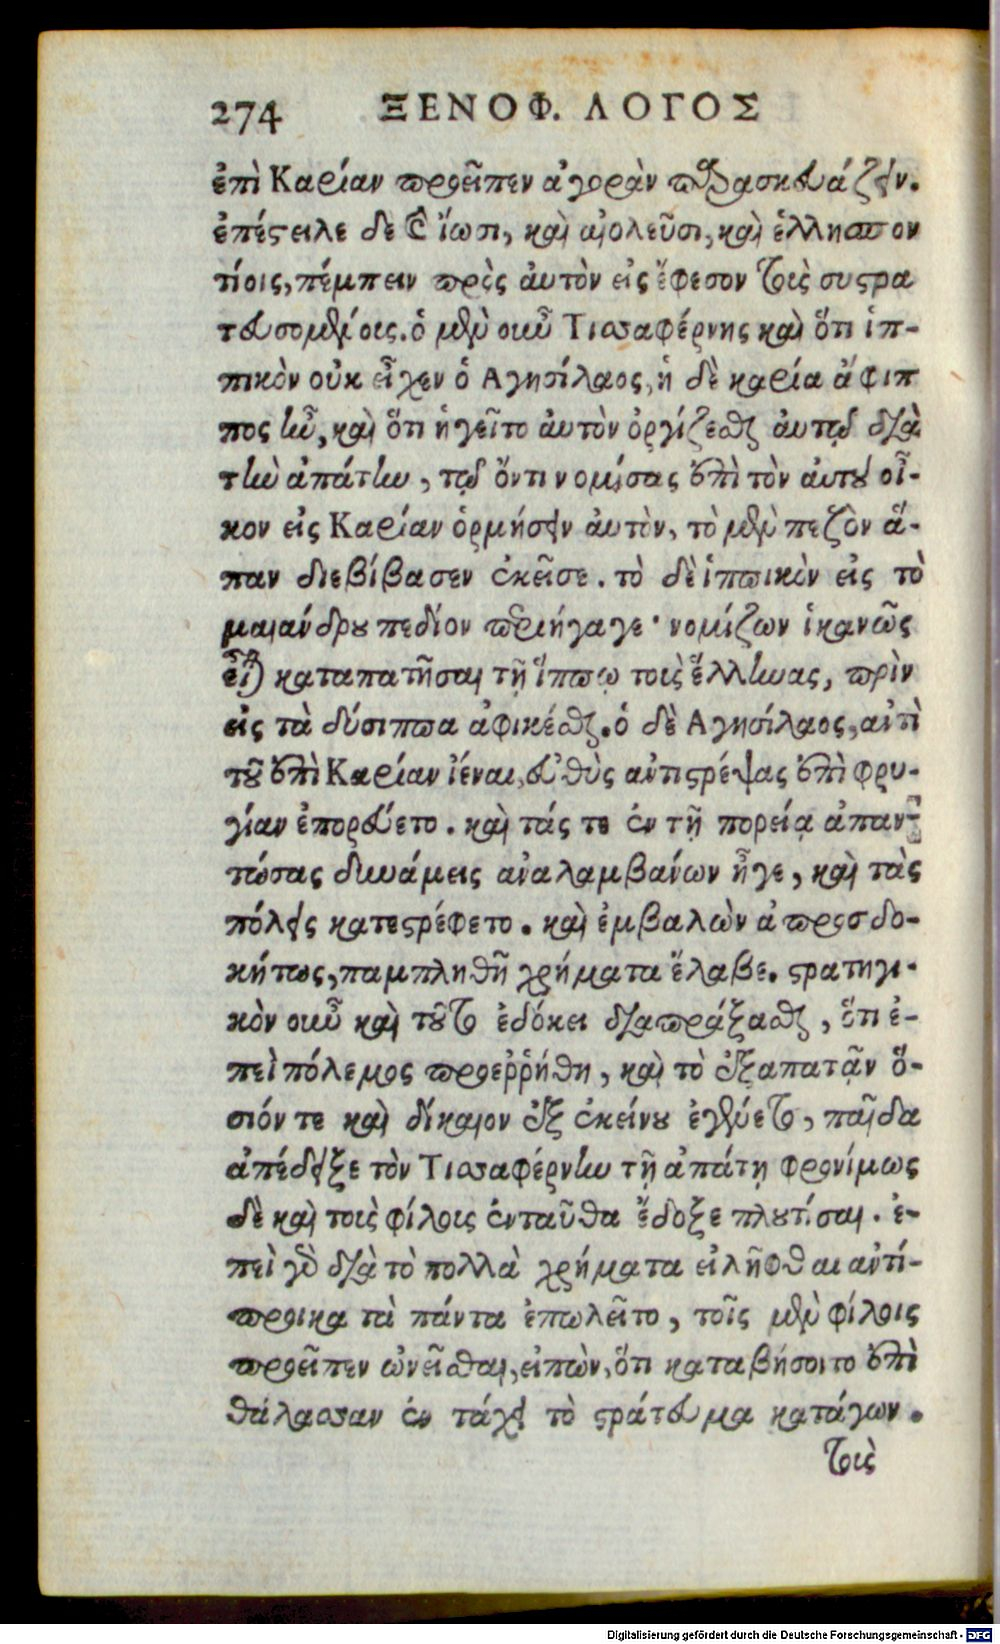 274 ΞΕΝΟΦ. ΛΟΓΟΣ
ἐπὶ Καρίαν προεῖπεν ἀγορὰν παρασκευάζειν.
ἐπέστειλε δὲ καὶ ἴωσι, καὶ αἰολεῦσι, καὶ ἑλλησπον
τίοις, πέμπειν πρὸς ἀυτὸν εἰς ἔφεσον τοὺς συστρα
τευσομένοις. ὁ μὲν οὖν Τισσαφέρνης καὶ ὅτι ἱπ-
πικὸν οὐκ εἶχεν ὁ Αγησίλαος, ἡ δὲ καρία ἄφιπ
πος ἦν, καὶ ὅτι ἡγεῖτο ἀυτὸν ὀργίζεσθαι ἀυτῷ διὰ
τὴν ἀπάτην, τῷ ὄντι νομίσας ἐπὶ τὸν ἀυτοῦ οἶ-
κον εἰς Καρίαν ὁρμήσειν ἀυτὸν, τὸ μὲν πεζὸν ἅ-
παν διεβίβασεν ἐκεῖσε. τὸ δὲ ἱππικὸν εἰς τὸ
μαιάνδρου πεδίον περιήγαγε· νομίζων ἱκανῶς
εἶναι καταπατῆσαι τῇ ἵππῳ τοὺς ἕλληνας, πρὶν
εἰς τὰ δύσιππα ἀφικέσθαι. ὁ δὲ Αγησίλαος, αντὶ
τοῦ ἐπὶ Καρίαν ἰέναι, ευθὺς αντιστρέψας ἐπὶ φρυ-
γίαν ἐπορεύετο. καὶ τάς τε ἐν τῇ πορείᾳ ἀπαν-
τώσας δυνάμεις αναλαμβανίων ἦγε, καὶ τὰς
πόλεις κατεστρέφετο. καὶ ἐμβαλὼν ἀπροσδο-
κήτως, παμπληθῆ χρήματα ἔλαβε. στρατηγι-
κὸν οὖν καὶ τοῦτο ἐδόκει διαπράξασθαι, ὅτι ἐ-
πεὶ πόλεμος προεῤῥήθη, καὶ τὸ ἐξαπατᾷν ὅ-
σιόν τε καὶ δίκαιον ἐξ ἐκείνου ἐγένετο, παῖδα
απέδειξε τὸν Τισσαφέρνην τῇ ἀπάτῃ φρονίμως
δὲ καὶ τοὺς φίλοις ἐνταῦθα ἔδοξε πλουτίσαι. ἐ-
πεὶ γὰρ διὰ τὸ πολλὰ χρήματα ειλῆφθαι αντί-
προικα τὰ πάντα ἐπωλεῖτο, τοῖς μὲν φίλοις
προεῖπεν ὠνεῖσθαι, εἰπὼν, ὅτι καταβήσοιτο ἐπὶ
θάλασσαν ἐν τάχει τὸ στράτευμα κατάγων.
τοὺς
Digitalisierung gefördert durch die Deutsche Forschungsgemeinschaft - DFG